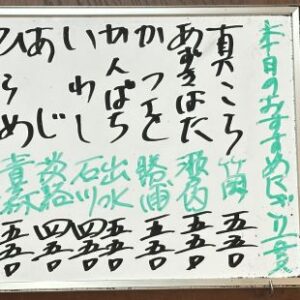 本日のおすすめにぎり一貫
真こち 竹岡 五五〇
あずきはた 五五〇
かつを 勝浦 五五〇
かんぱち 出水 五五〇
いわし 石川 四五〇
あじ 淡路 四五〇
ひらめ 青森 五五〇